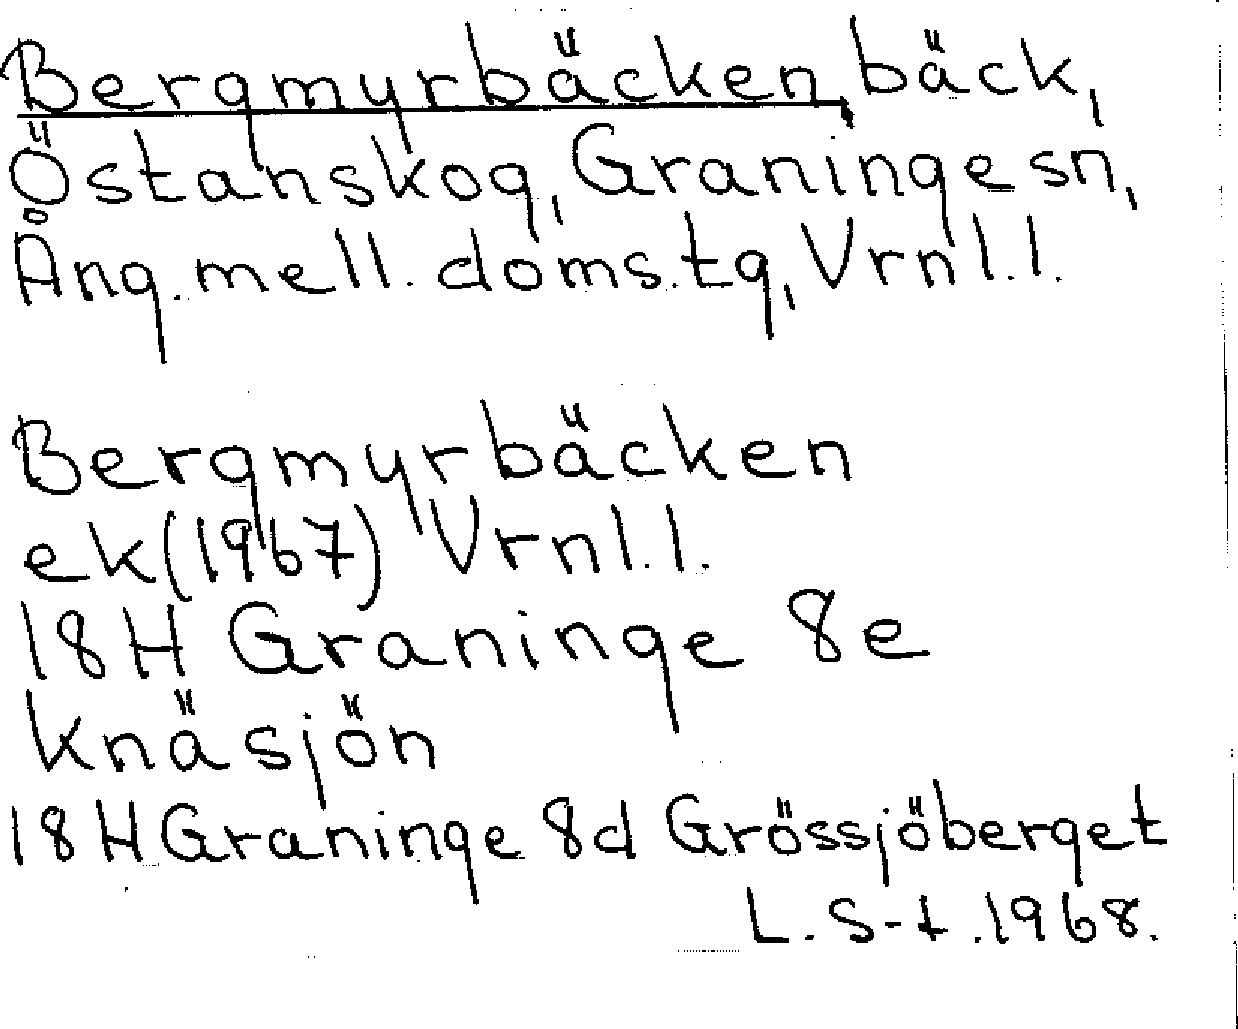 Bergmyrbäcken, bäck,
Östanskog, Graninge sn,
Ång. mell. doms. tg, Vrnl. l.
Bergmyrbäcken
ek (1967) Vrnl. l.
18H Graninge 8e
Knäsjön
18H Graninge 8d Grössjöberget
L. S-t. 1968.